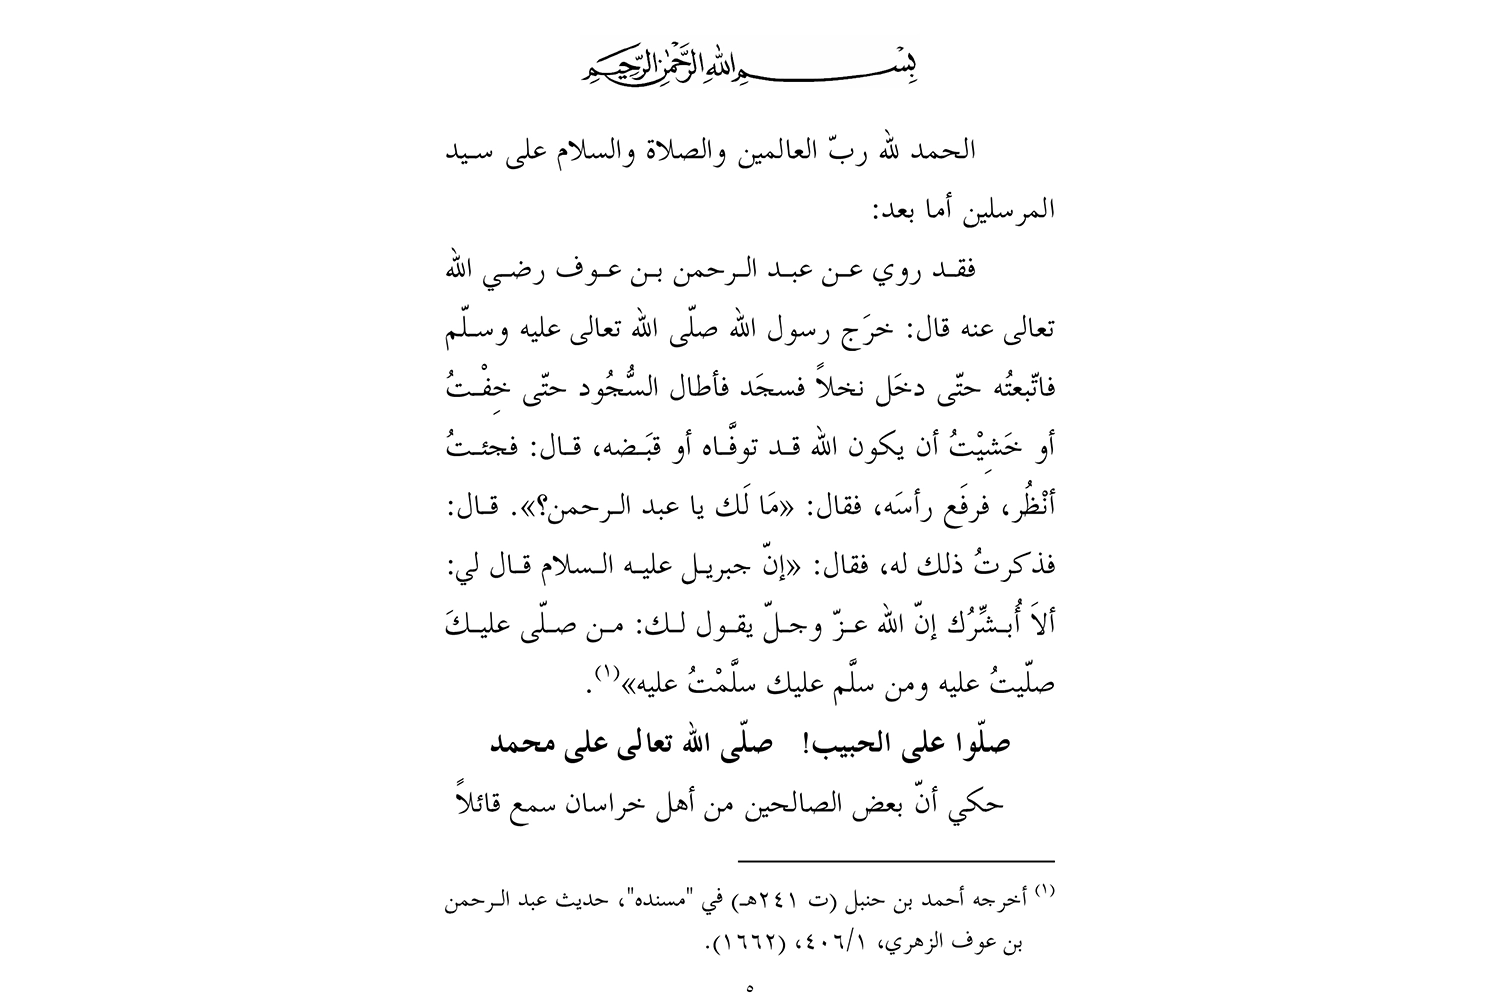 بِسْمِ اللهِ الرَّحْمٰنِ الرَّحِيْمِ
الحمد لله ربّ العالمين والصلاة والسلام على سيد
المرسلين أما بعد:
فقد روي عن عبد الرحمن بن عوف رضي الله
تعالى عنه قال: خرَج رسول الله صلّى الله تعالى عليه وسلّم
فاتّبعتُه حتّى دخَل نخلاً فسجَد فأطال السُّجُود حتّى خِفْتُ
أو خَشِيْتُ أن يكون الله قد توفَّاه أو قبَضه، قال: فجئتُ
أنْظُر، فرفَع رأسَه، فقال: «مَا لَك يا عبد الرحمن؟». قال:
فذكرتُ ذلك له، فقال: «إنّ جبريل عليه السلام قال لي:
ألاَ أُبشِّرُك إنّ الله عزّ وجلّ يقول لك: من صلّى عليكَ
صلّيتُ عليه ومن سلَّم عليك سلَّمْتُ عليه»(١).
صلّوا على الحبيب! صلّى الله تعالى على محمد
حكي أنّ بعض الصالحين من أهل خراسان سمع قائلاً
(١) أخرجه أحمد بن حنبل (ت ٢٤١هـ) في "مسنده"، حديث عبد الرحمن
بن عوف الزهري، ٤٠٦/١، (١٦٦٢).
٥